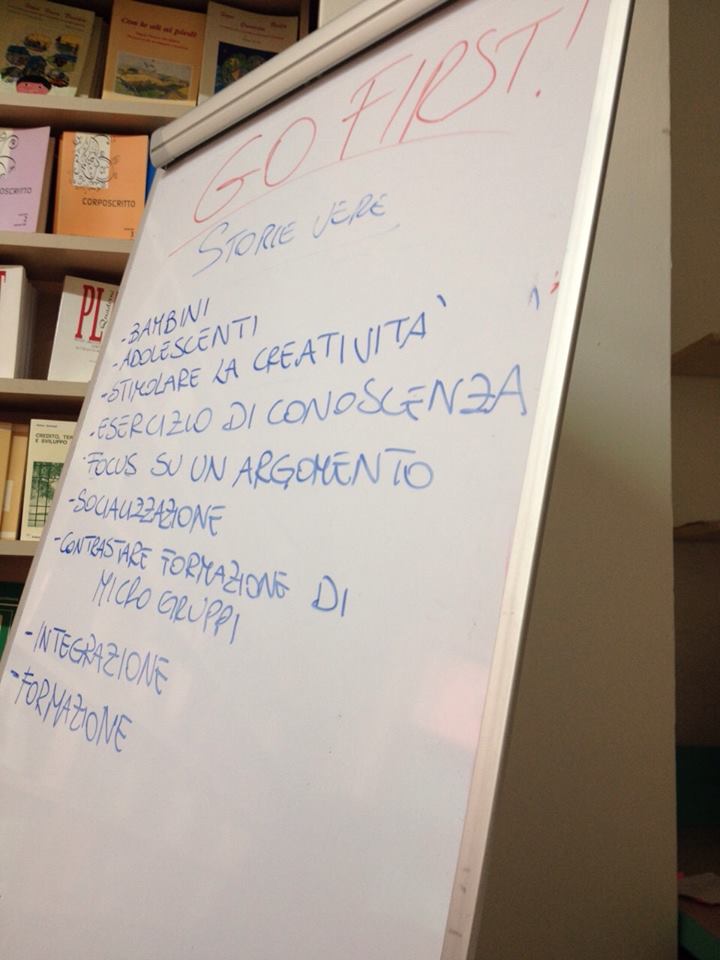 Con le ali ai piedi
CORPOSCRITTO
2
CORPOSCRITTO
3
PL
CREDITO, TER
E SVILUPPO
GO FIRST!
STORIE VERE
- BAMBINI
- ADOLESCENTI
- STIMOLARE LA CREATIVITÀ
- ESERCIZIO DI CONOSCENZA
- FOCUS SU UN ARGOMENTO
- SOCIALIZZAZIONE
- CONTRASTARE FORMAZIONE DI
MICRO GRUPPI
- INTEGRAZIONE
- FORMAZIONE